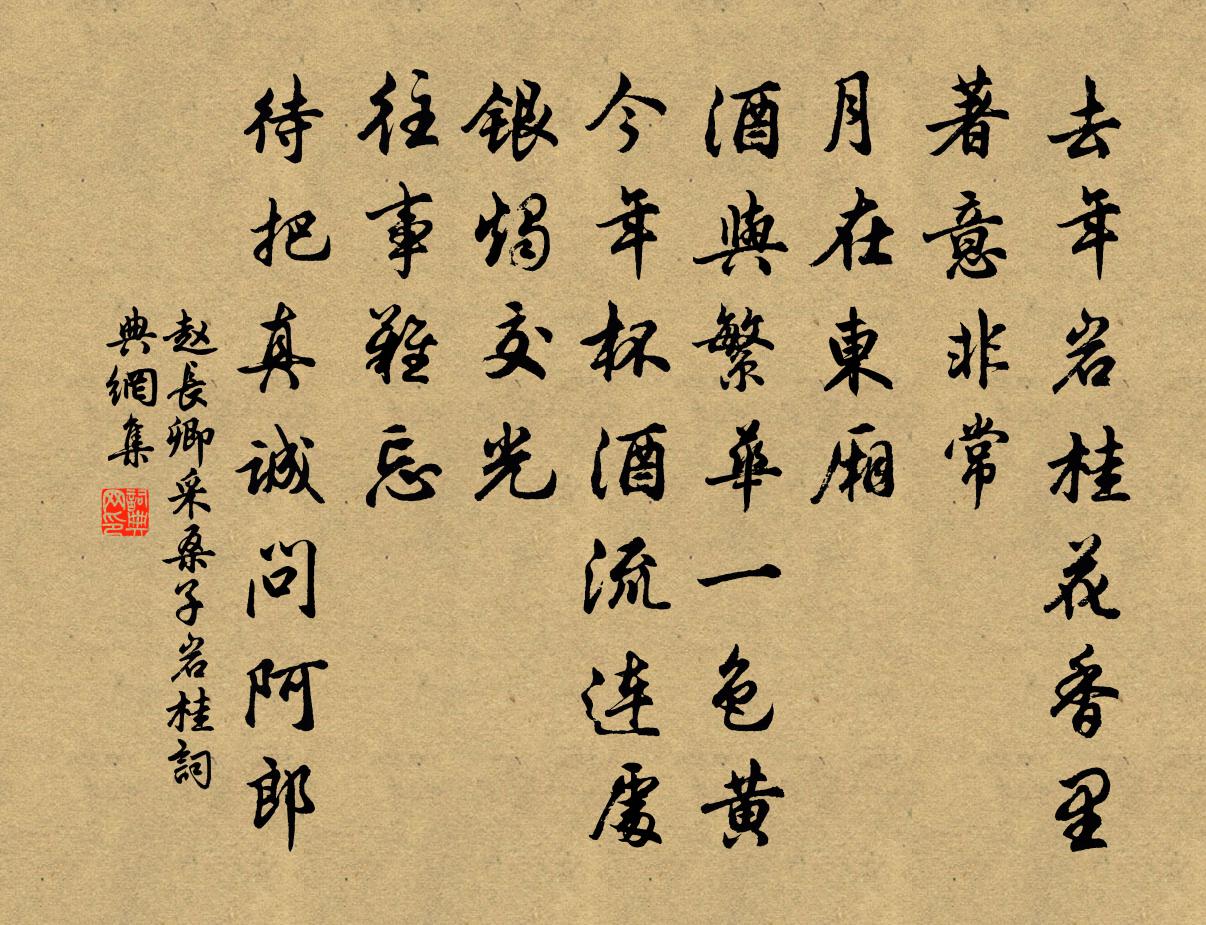 去年岩桂花香里
著意非常
月在東廂
酒與繁華一色黄
今年杯酒流連處
銀燭交光
往事難忘
待把真誠問阿郎
赵長卿采桑子岩桂詞
典網集
詞典
网印